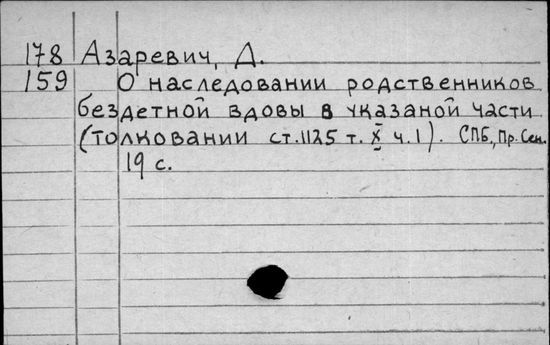 178 Азаревич, Д.
159 О наследовании родственников
бездетной вдовы в указаной части
(толковании ст. 1125 т. X ч. 1). СПБ., Пр. Сен.
19 с.